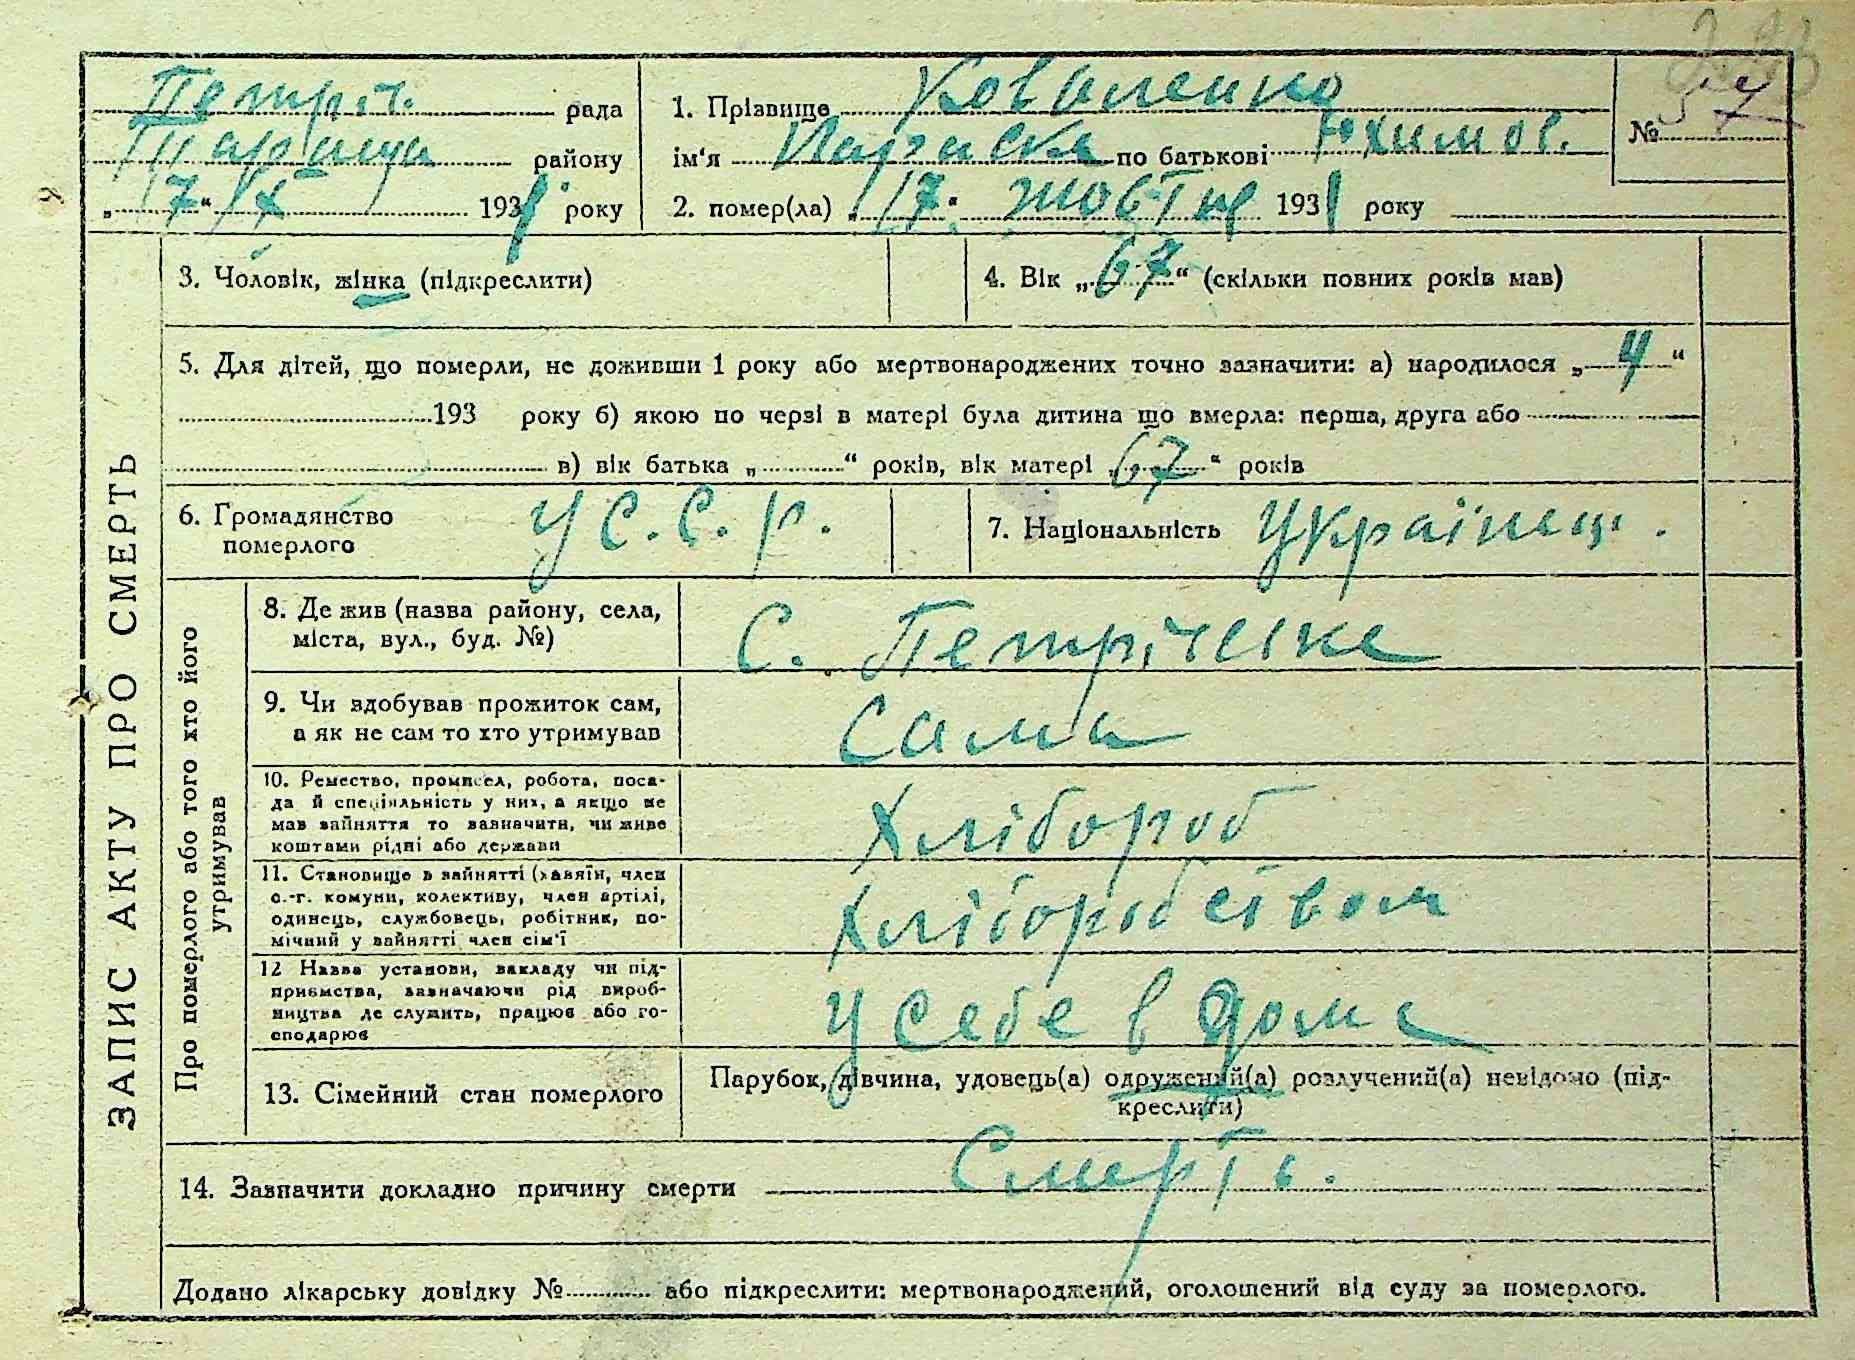 Петріч. рада
Таращ. району
„17“ X 1931 року
1. Прізвище Коваленко
ім'я Параска по батькові Юхимов.
2. помер(ла) „17“ жовтня 1931 року
№ 57
ЗАПИС АКТУ ПРО СМЕРТЬ
3. Чоловік, жінка (підкреслити)
4. Вік „67“ (скільки повних років мав)
5. Для дітей, що померли, не доживши 1 року або мертвонароджених точно зазначити: а) народилося „ “
193 року б) якою по черзі в матері була дитина що вмерла: перша, друга або
в) вік батька „ “ років, вік матері „67“ років
6. Громадянство
померлого У С.С.Р.
7. Національність Українц.
Про померлого або того хто його
утримував
8. Де жив (назва району, села,
міста, вул., буд. №)
С. Петрівське
9. Чи здобував прожиток сам,
а як не сам то хто утримував
Сама
10. Ремество, промисел, робота, поса-
да й спеціяльність у них, а якщо не
мав зайняття то зазначити, чи живе
коштами рідні або держави
Хлібороб
11. Становище в зайнятті (хазяїн, член
с.-г. комуни, колективу, член артілі,
одинець, службовець, робітник, по-
мічний у зайнятті член сім'ї
Хліборобством
12 Назва установи, закладу чи під-
приємства, зазначаючи рід вироб-
ництва де служить, працює або го-
сподарює
У себе в доме
13. Сімейний стан померлого
Парубок, дівчина, удовець(а) одружений(а) розлучений(а) невідомо (під-
креслити)
14. Зазначити докладно причину смерти Смерть.
Додано лікарську довідку № або підкреслити: мертвонароджений, оголошений від суду за померлого.